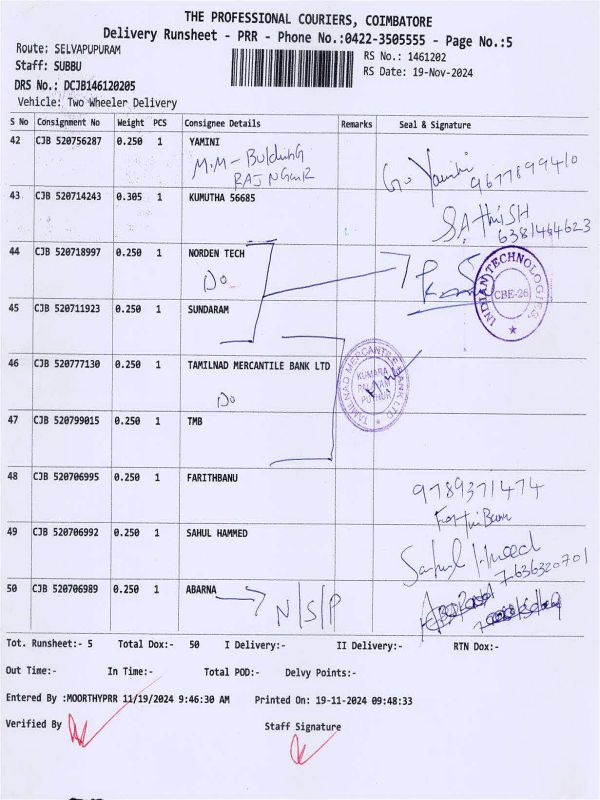 THE PROFESSIONAL COURIERS, COIMBATORE
Delivery Runsheet - PRR - Phone No.:0422-3505555 - Page No.:5
Route: SELVAPUPURAM
RS No.: 1461202
Staff: SUBBU
RS Date: 19-Nov-2024
DRS No.: DCJB146120205
Vehicle: Two Wheeler Delivery
S No Consignment No Weight PCS Consignee Details Remarks Seal & Signature
42 CJB 520756287 0.250 1 YAMINI
M.M - Building
RAJ Nagar
9677899410
43 CJB 520714243 0.305 1 KUMUTHA 56685
SATHISH
6381464623
44 CJB 520718997 0.250 1 NORDEN TECH
Do
INDIAN TECHNOLOGIES,
CBE-26
45 CJB 520711923 0.250 1 SUNDARAM
46 CJB 520777130 0.250 1 TAMILNAD MERCANTILE BANK LTD
Do
TAMILNAD MERCANTILE BANK LTD
KUMARA
PALAYAM
PUTHUR
47 CJB 520799015 0.250 1 TMB
48 CJB 520706995 0.250 1 FARITHBANU
9789371474
49 CJB 520706992 0.250 1 SAHUL HAMMED
7636320701
50 CJB 520706989 0.250 1 ABARNA
N/S/P
Tot. Runsheet:- 5 Total Dox:- 50 I Delivery:- II Delivery:- RTN Dox:-
Out Time:- In Time:- Total POD:- Delvy Points:-
Entered By :MOORTHYPRR 11/19/2024 9:46:30 AM Printed On: 19-11-2024 09:48:33
Verified By Staff Signature